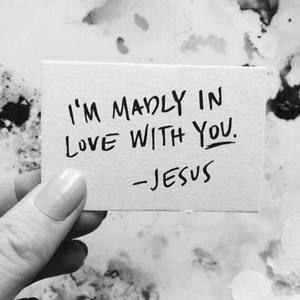 I'M MADLY IN
LOVE WITH YOU.
-JESUS